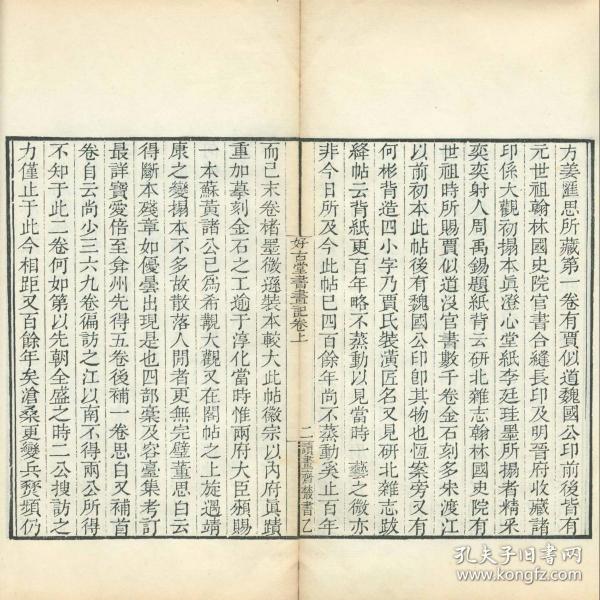 方姜滙思所藏第一卷有賈似道魏國公印前後皆有
元世祖翰林國史院官書合縫長印及明晉府收藏諸
印係大觀初搨本眞澄心堂紙李廷珪墨所搨者精采
奕奕射人周禹錫題紙背云研北雜志翰林國史院有
世祖時所賜賈似道沒官書數千卷金石刻多宋渡江
以前初本此帖後有魏國公印卽其物也恆案旁又有
何彬背造四小字乃賈氏裝潢匠名又見研北雜志跋
絳帖云背紙更百年略不蒸動以見當時一藝之微亦
非今日所及今此帖已四百餘年尚不蒸動矣止百年
好古堂書畫記卷上
二
讀畫齋叢書乙
而已末卷楮墨微遜裝本較大此帖徽宗以內府眞蹟
重加摹刻金石之工逾于淳化當時惟兩府大臣頒賜
一本蘇黃諸公已爲希觀大觀又在閣帖之上旋遇靖
康之變搨本不多故散落人閒者更無完璧董思白云
得斷本殘章如優曇出現是也四部稾及容臺集考訂
最詳寶愛倍至弇州先得五卷後補一卷思白又補首
卷自云尚少三六九卷徧訪之江以南不得兩公所得
不知于此二卷何如第以先朝全盛之時二公搜訪之
力僅止于此今相距又百餘年矣滄桑更變兵燹頻仍
孔夫子旧书网
www.kongfz.com